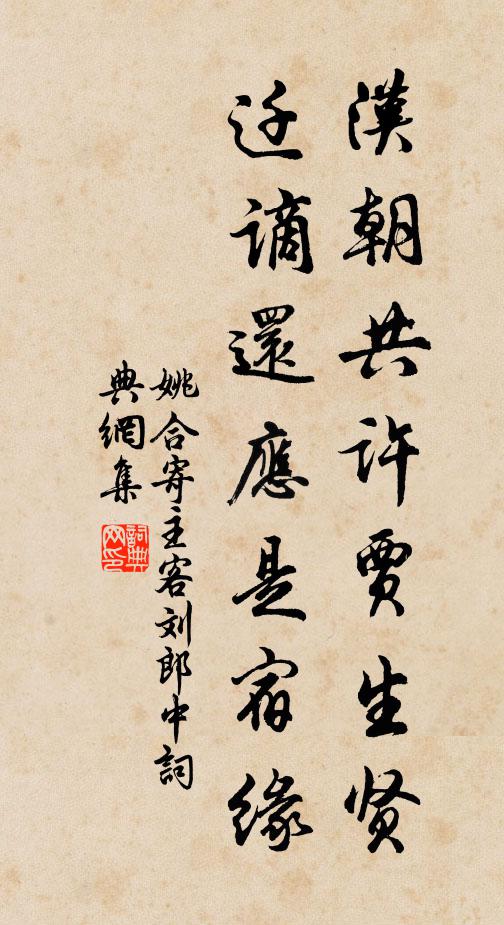 漢朝共许賈生贤
迁謫還應是宿緣
姚合寄主客刘郎中詞
典網集
詞典
网印